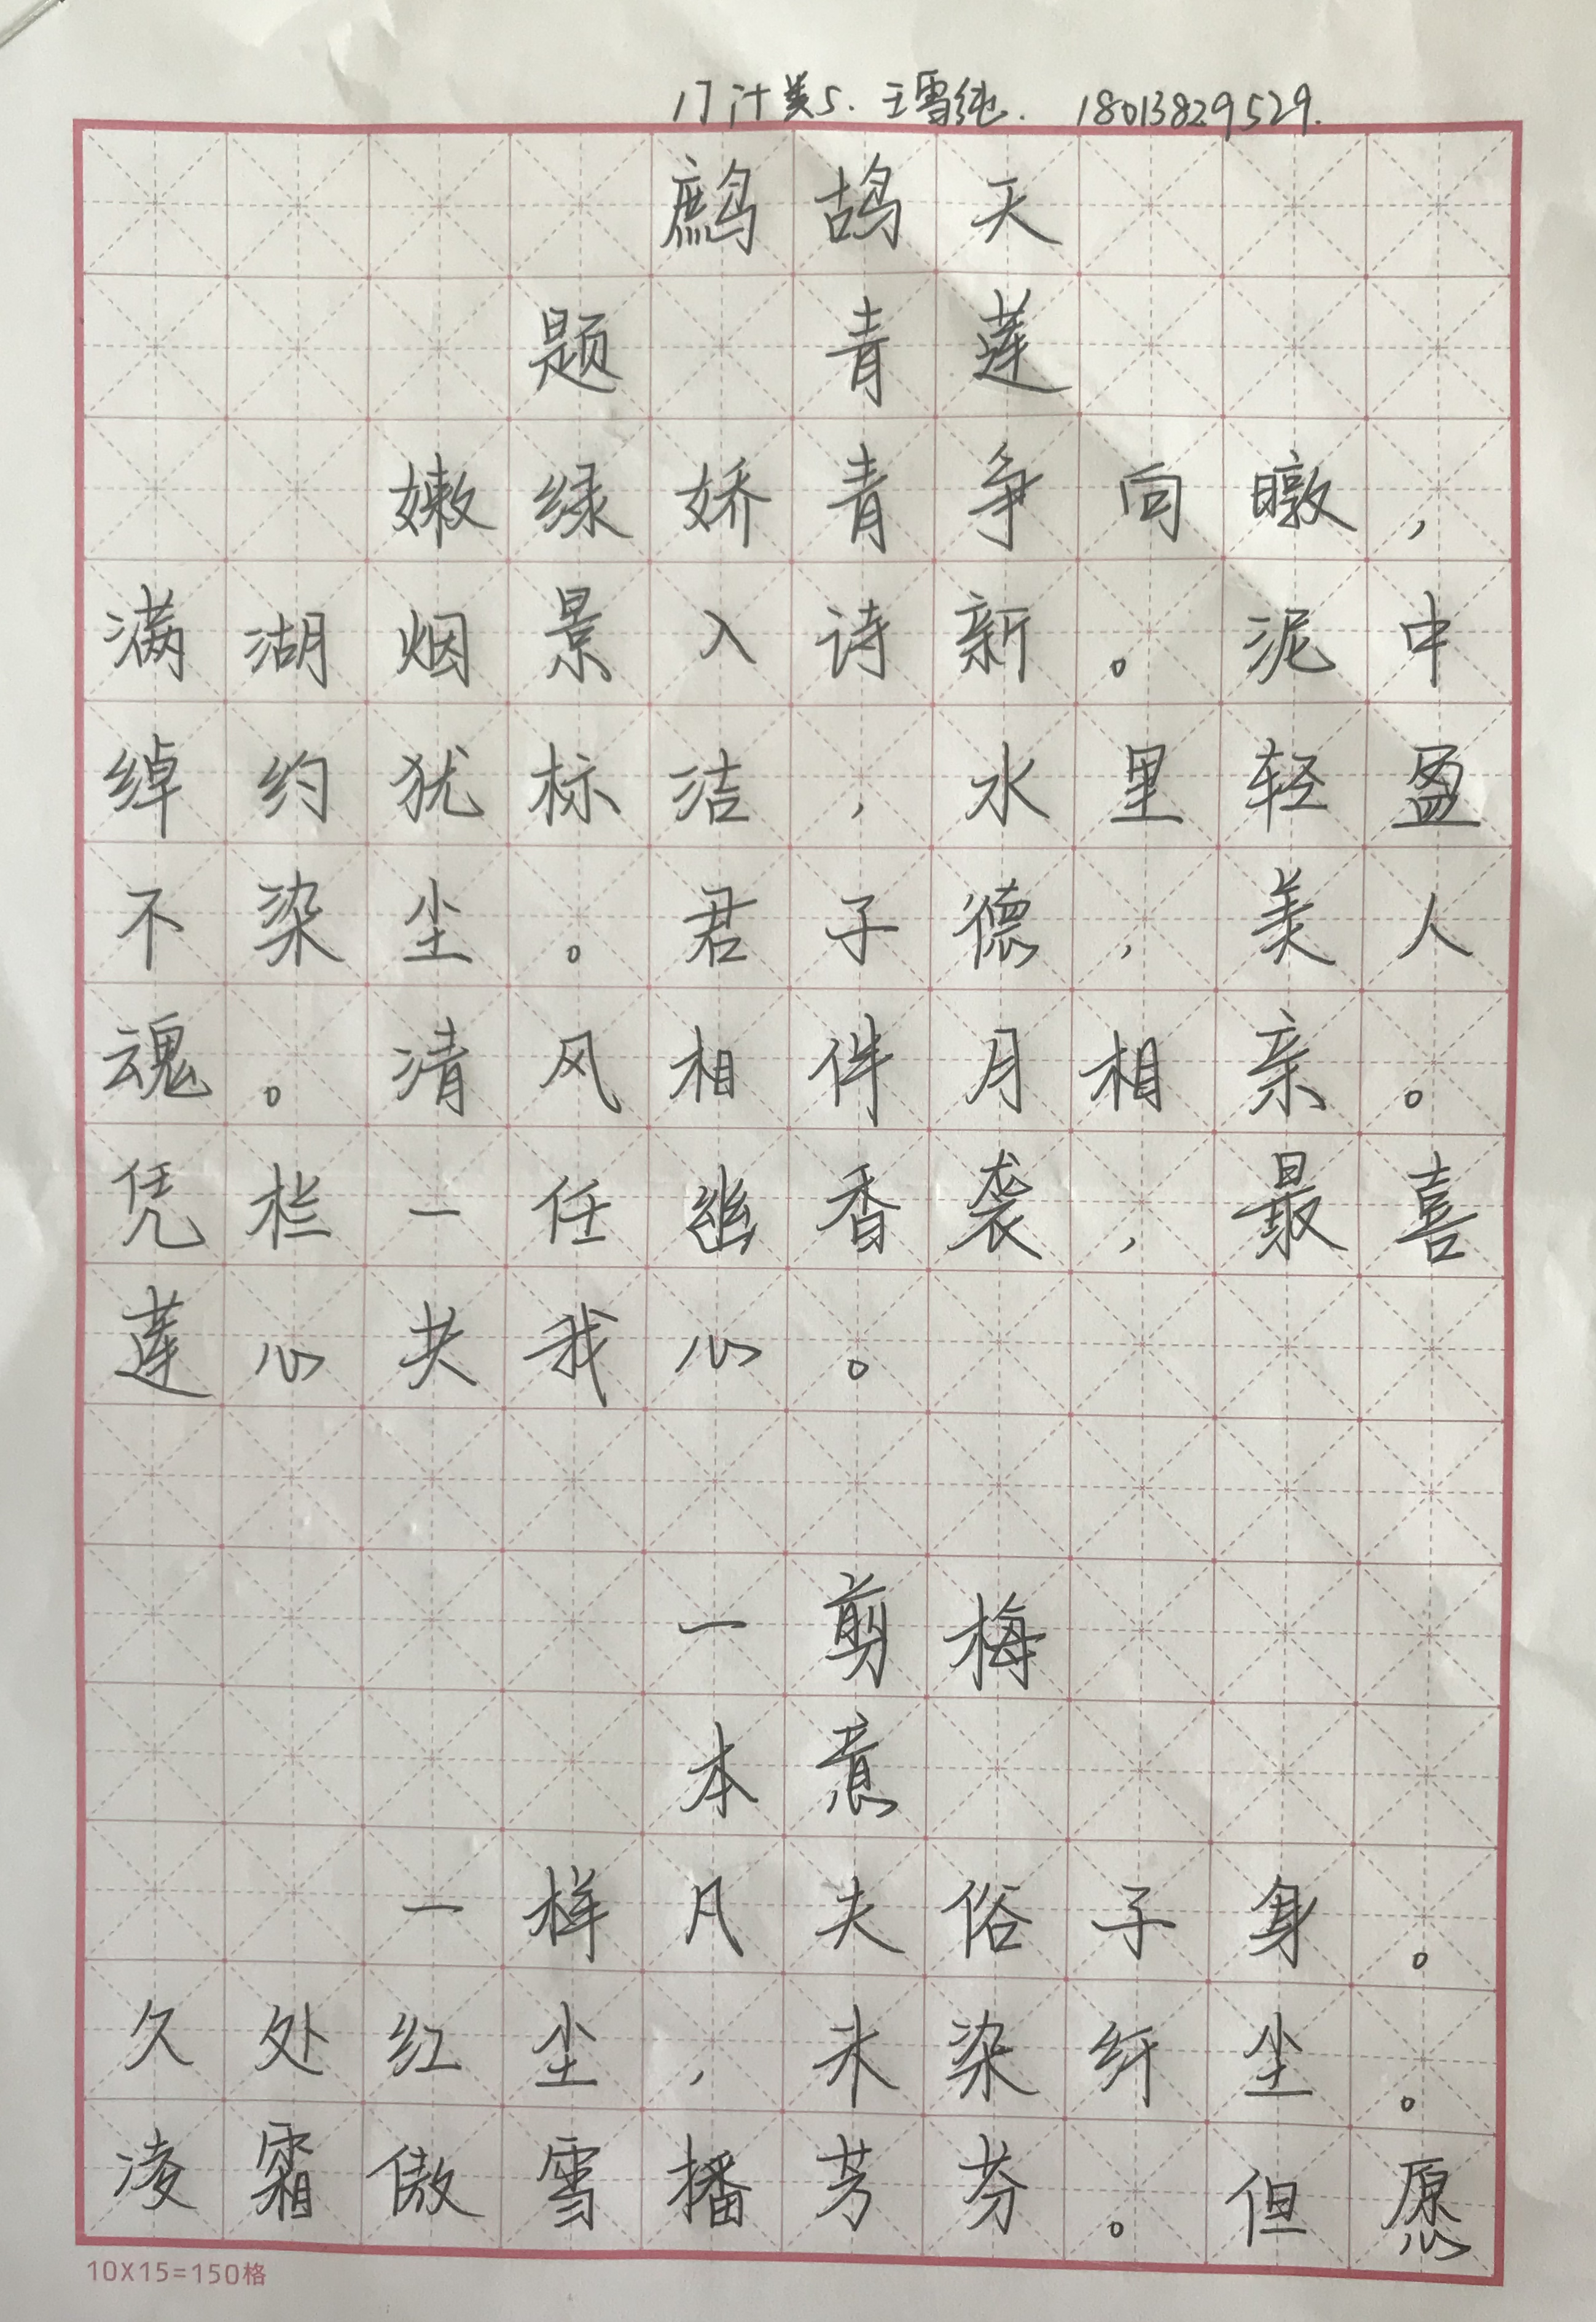 17汁美5. 王雪纯. 18013829529.
鹧鸪天
题 青莲
嫩绿娇青争向暾，
满湖烟景入诗新。泥中
绰约犹标洁，水里轻盈
不染尘。君子德，美人
魂。清风相伴月相亲。
凭栏一任幽香袭，最喜
莲心共我心。
一剪梅
本意
一样凡夫俗子身。
久处红尘，未染纤尘。
凌霜傲雪播芳芬。但愿
10X15=150格